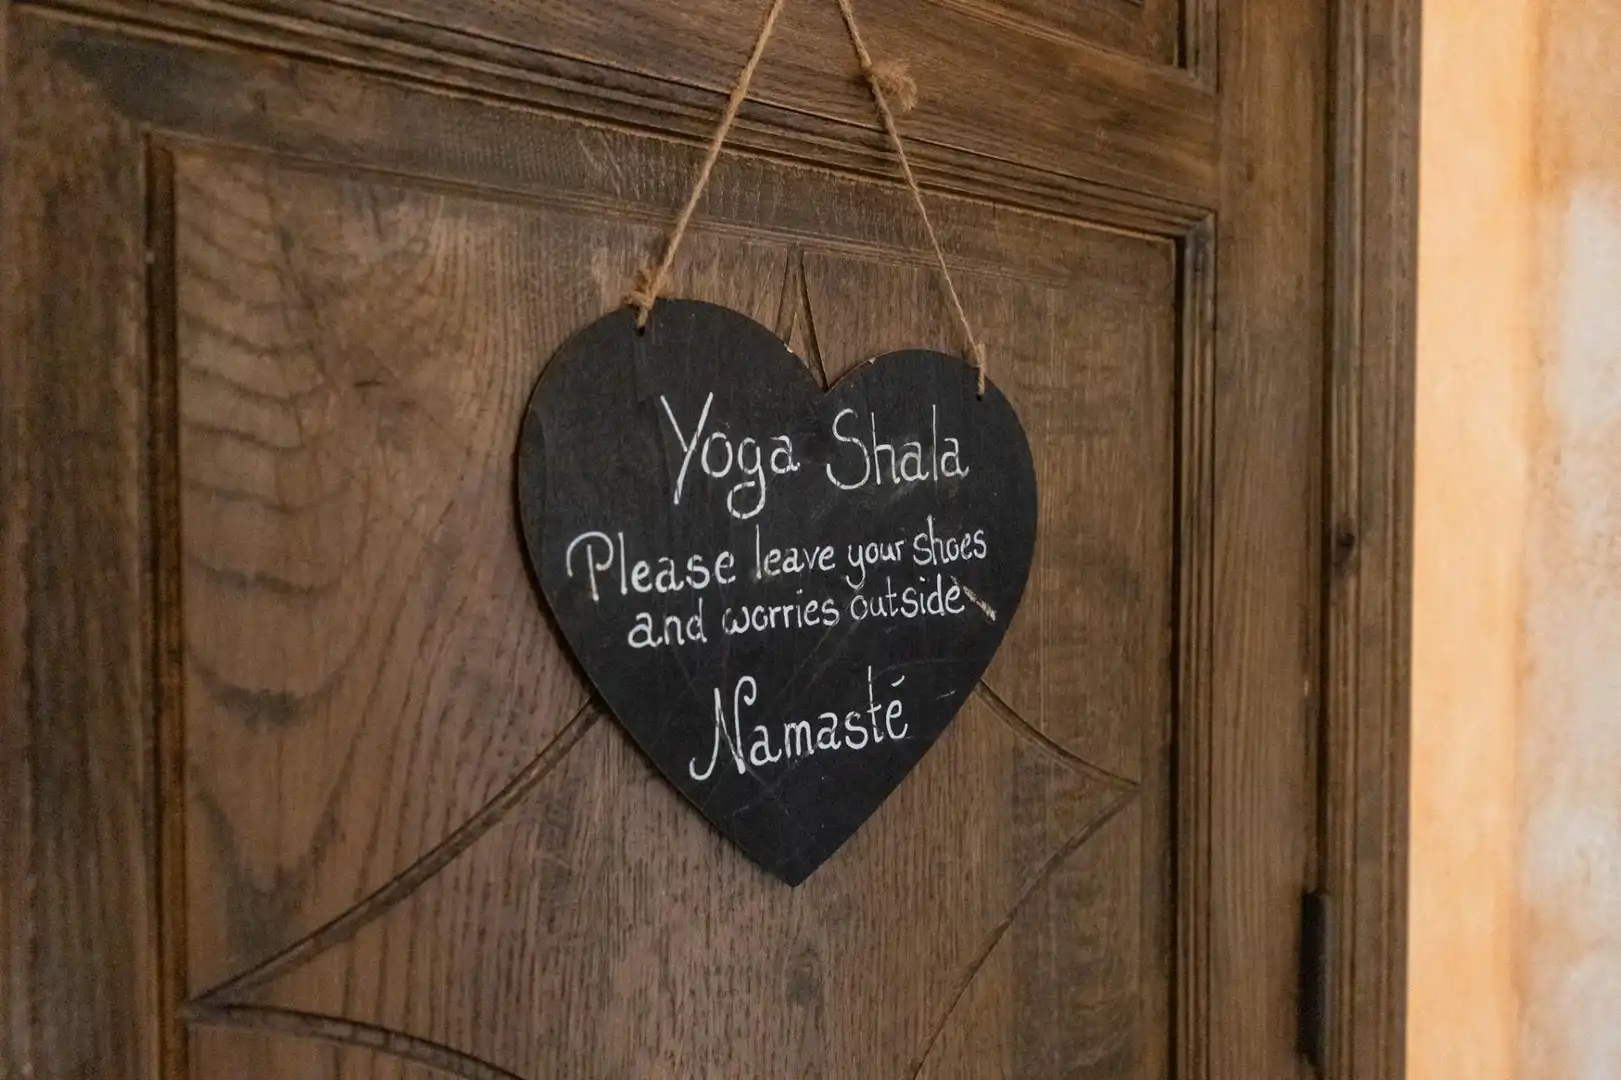 Yoga Shala
Please leave your shoes
and worries outside
Namasté